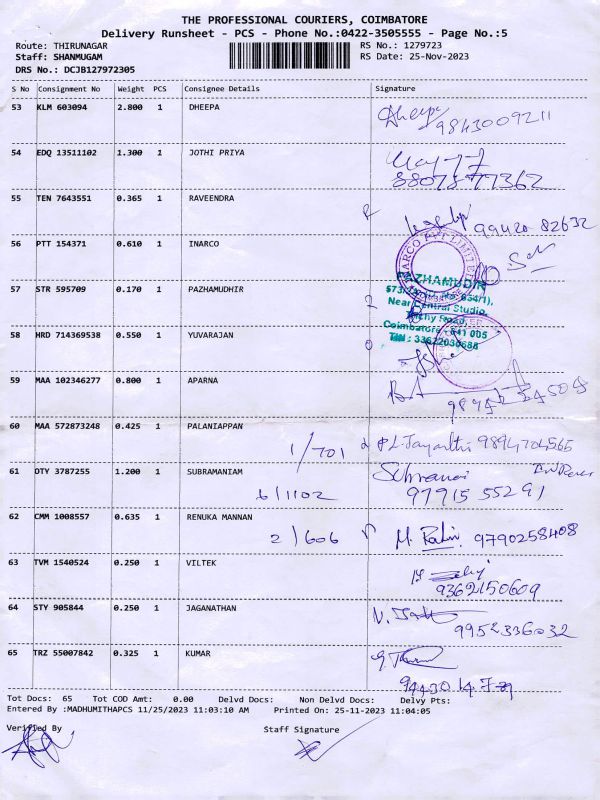 THE PROFESSIONAL COURIERS, COIMBATORE
Delivery Runsheet - PCS - Phone No.:0422-3505555 - Page No.:5
Route: THIRUNAGAR RS No.: 1279723
Staff: SHANMUGAM RS Date: 25-Nov-2023
DRS No.: DCJB127972305
S No Consignment No Weight PCS Consignee Details Signature
53 KLM 603094 2.800 1 DHEEPA Dheepa
9843009211
54 EDQ 13511102 1.300 1 JOTHI PRIYA
88078 77362
55 TEN 7643551 0.365 1 RAVEENDRA 99420 82632
56 PTT 154371 0.610 1 INARCO
57 STR 595709 0.170 1 PAZHAMUDHIR PAZHAMUDIR
Near Central Studio,
Trichy Road,
Coimbatore - 641 005
58 HRD 714369538 0.550 1 YUVARAJAN
59 MAA 102346277 0.800 1 APARNA
60 MAA 572873248 0.425 1 PALANIAPPAN
1/701 P.L. Jayanthi 9894704565
61 OTY 3787255 1.200 1 SUBRAMANIAM
6/1102 97915 55291
62 CMM 1008557 0.635 1 RENUKA MANNAN
2/606 9790258408
63 TVM 1540524 0.250 1 VILTEK
9362150609
64 STY 905844 0.250 1 JAGANATHAN
9952336032
65 TRZ 55007842 0.325 1 KUMAR
Tot Docs: 65 Tot COD Amt: 0.00 Delvd Docs: Non Delvd Docs: Delvy Pts:
Entered By :MADHUMITHAPCS 11/25/2023 11:03:10 AM Printed On: 25-11-2023 11:04:05
Verified By Staff Signature